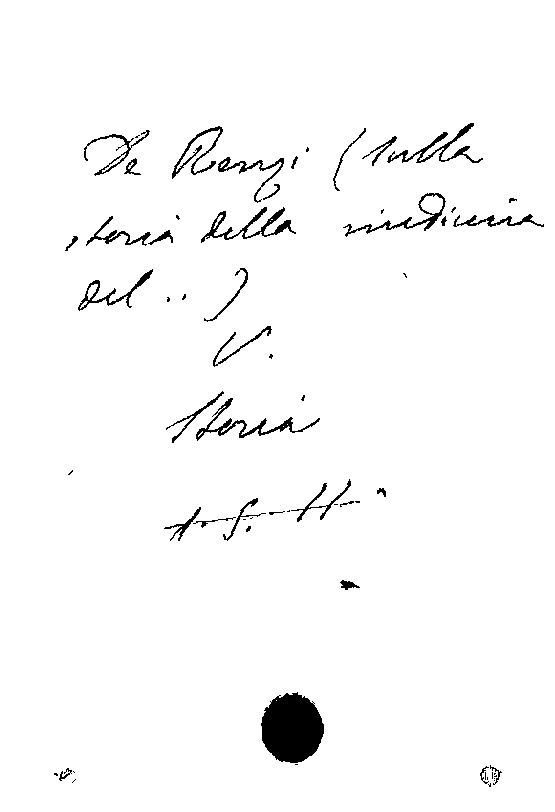 De Renzi (sulla
storia della medicina
del..)
V.
Storia